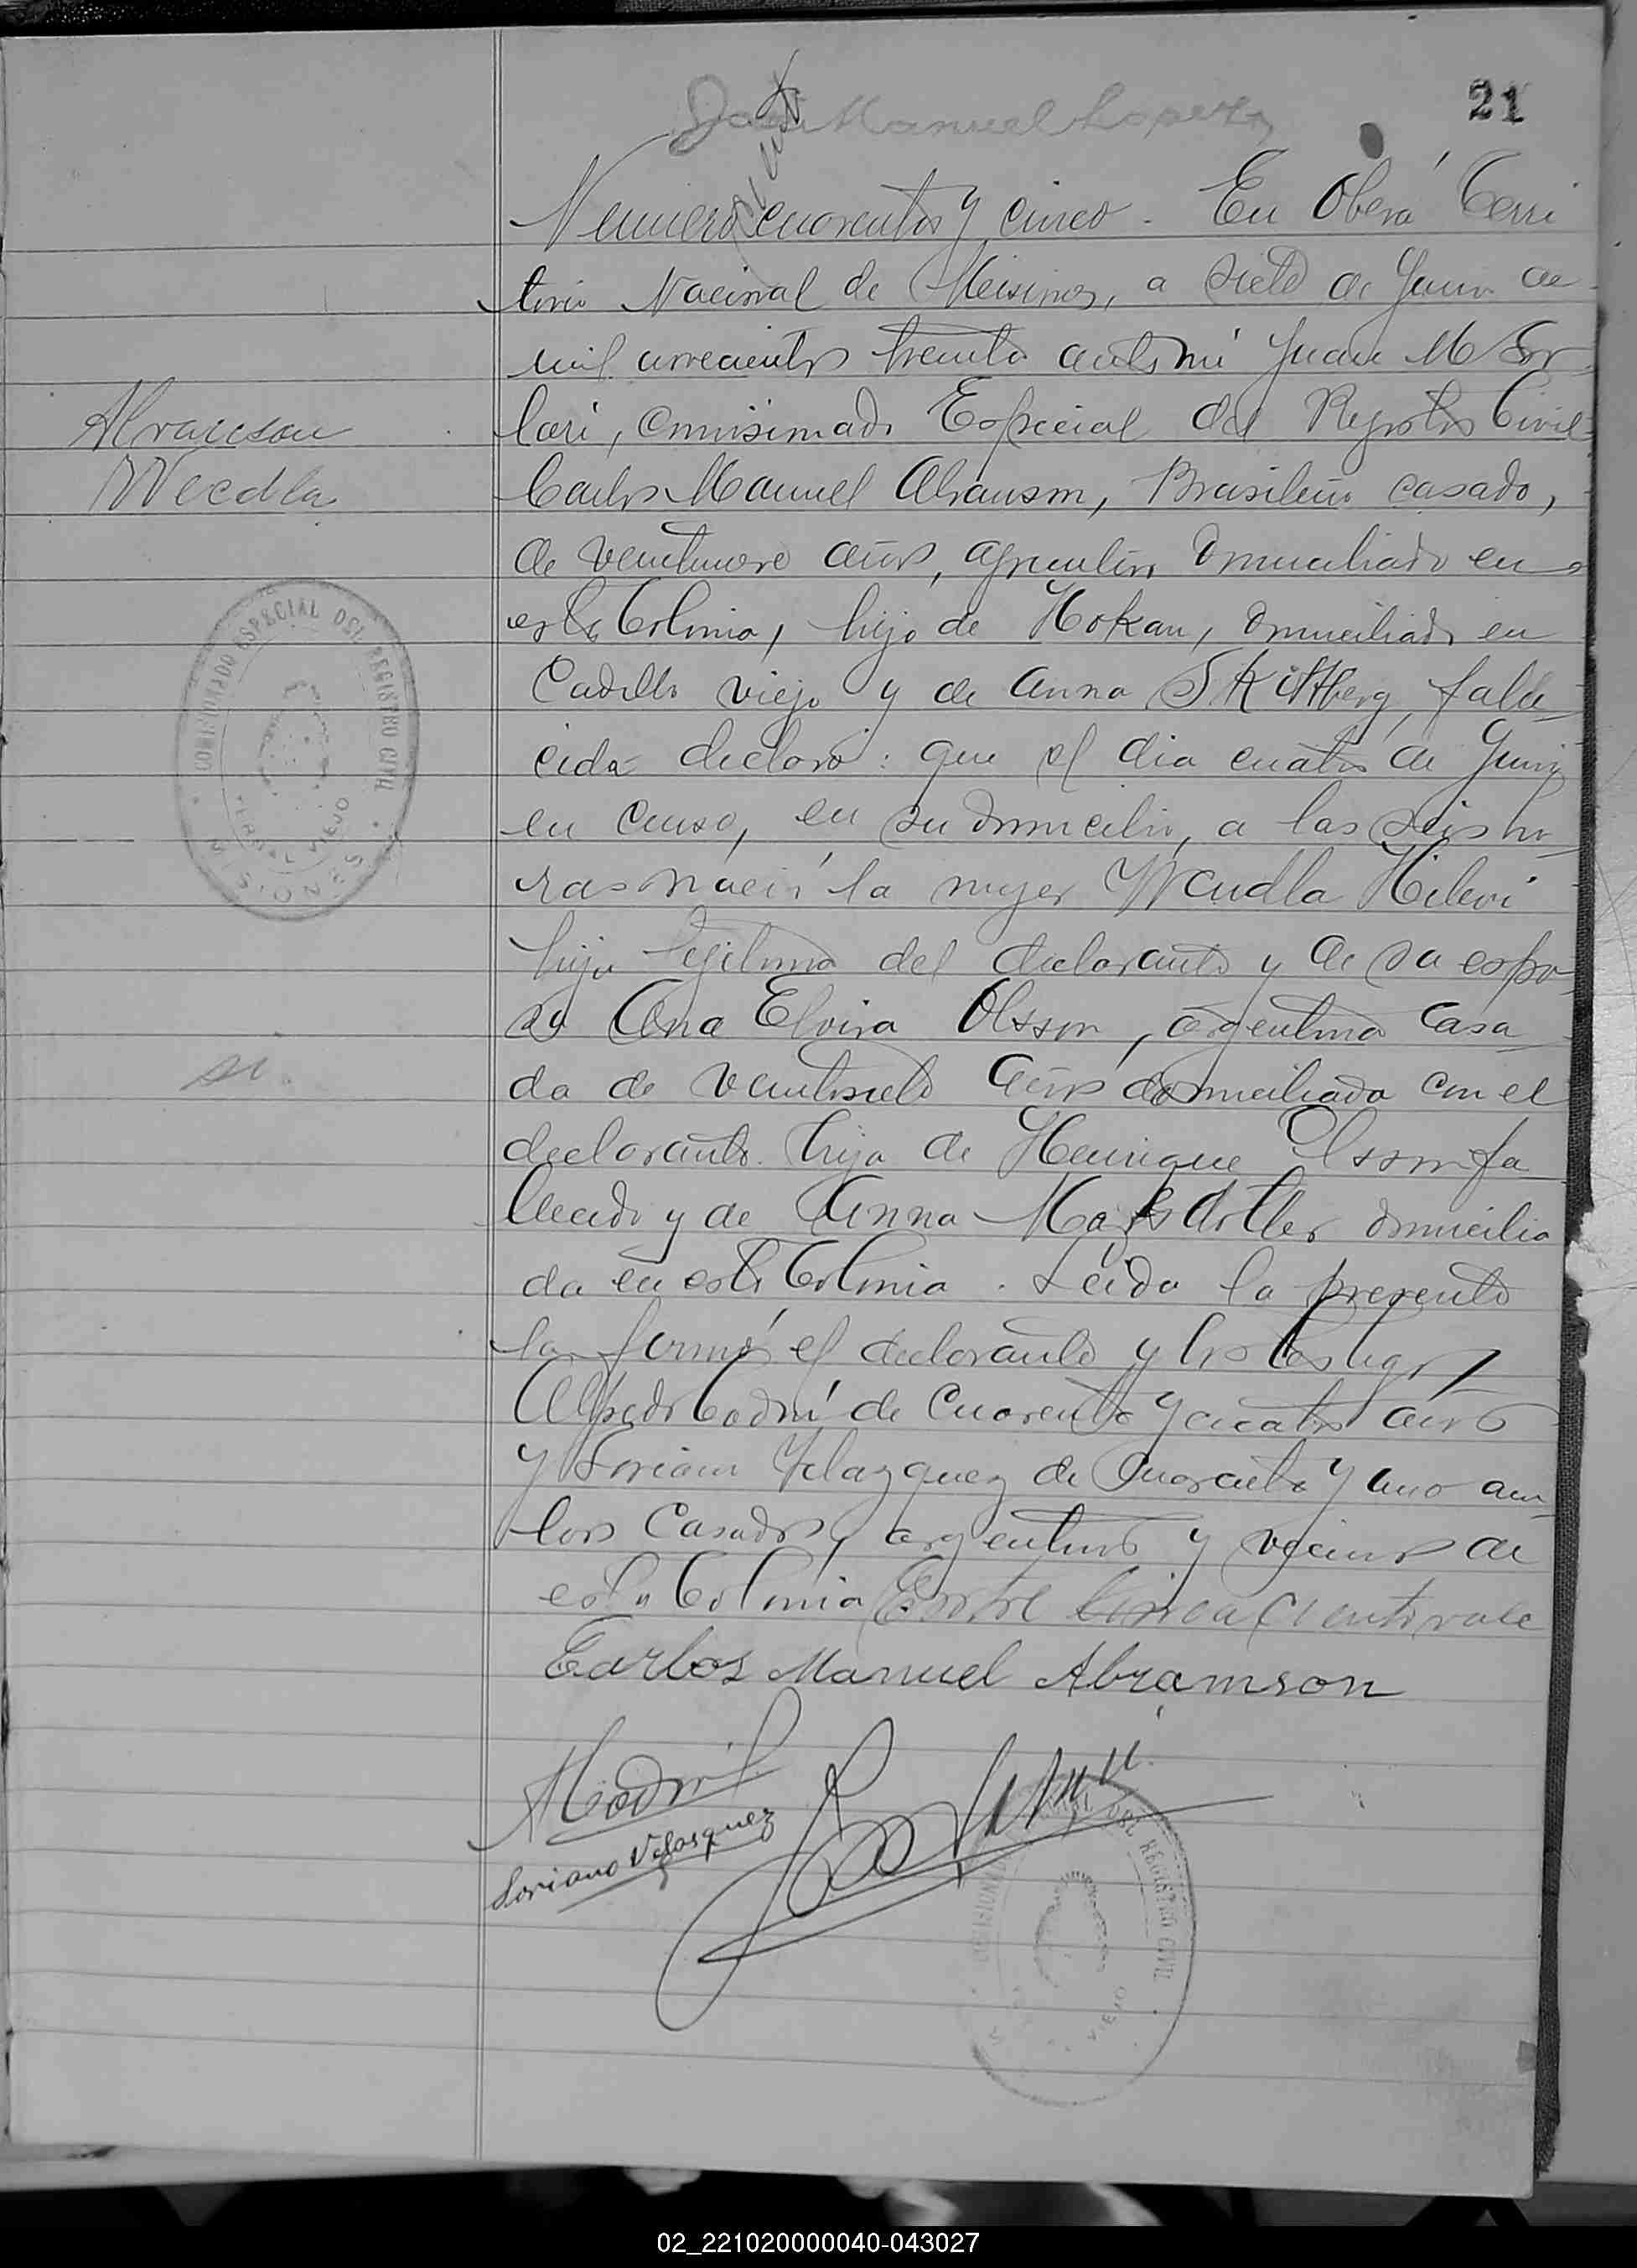 José Manuel Lopez
21
Numero cuarenta y cinco. En Oberá Terri
ciento
torio Nacional de Misiones, a siete de Junio de
mil novecientos treinta ante mi Juan M
lari, Comisionado Especial del Registro Civil
Abramson
Wendla
Carlos Manuel Abramson, Brasileño casado,
de veintinueve años, agricultor, domiciliado en
esta Colonia, hijo de Hokan, domiciliado en
Cadillo viejo y de Anna Skittberg, falle
cida declaró: que el dia cuatro de Junio
en curso, en su domicilio, a las seis ho
ras nació la mujer Wendla
hija legitima del declarante y de su espo
sa Ana Elvira Olsson, argentina casa
da de veintisiete años domiciliada con el
si.
declarante. hija de Henrique Olsson fa
llecido y de Anna domicilia
da en esta Colonia. Leida la presente
la firmó el declarante y los testigos
Alfredo Codrí de cuarenta y cuatro años
y Soriano Velazquez de cuarenta y uno am
bos casados, argentinos y vecinos de
esta Colonia Entre linea ciento vale
Carlos Manuel Abramson
Soriano Velasquez
COMISIONADO ESPECIAL DEL REGISTRO CIVIL
VIEJO
MISIONES
DEL REGISTRO CIVIL
VIEJO
02_221020000040-043027